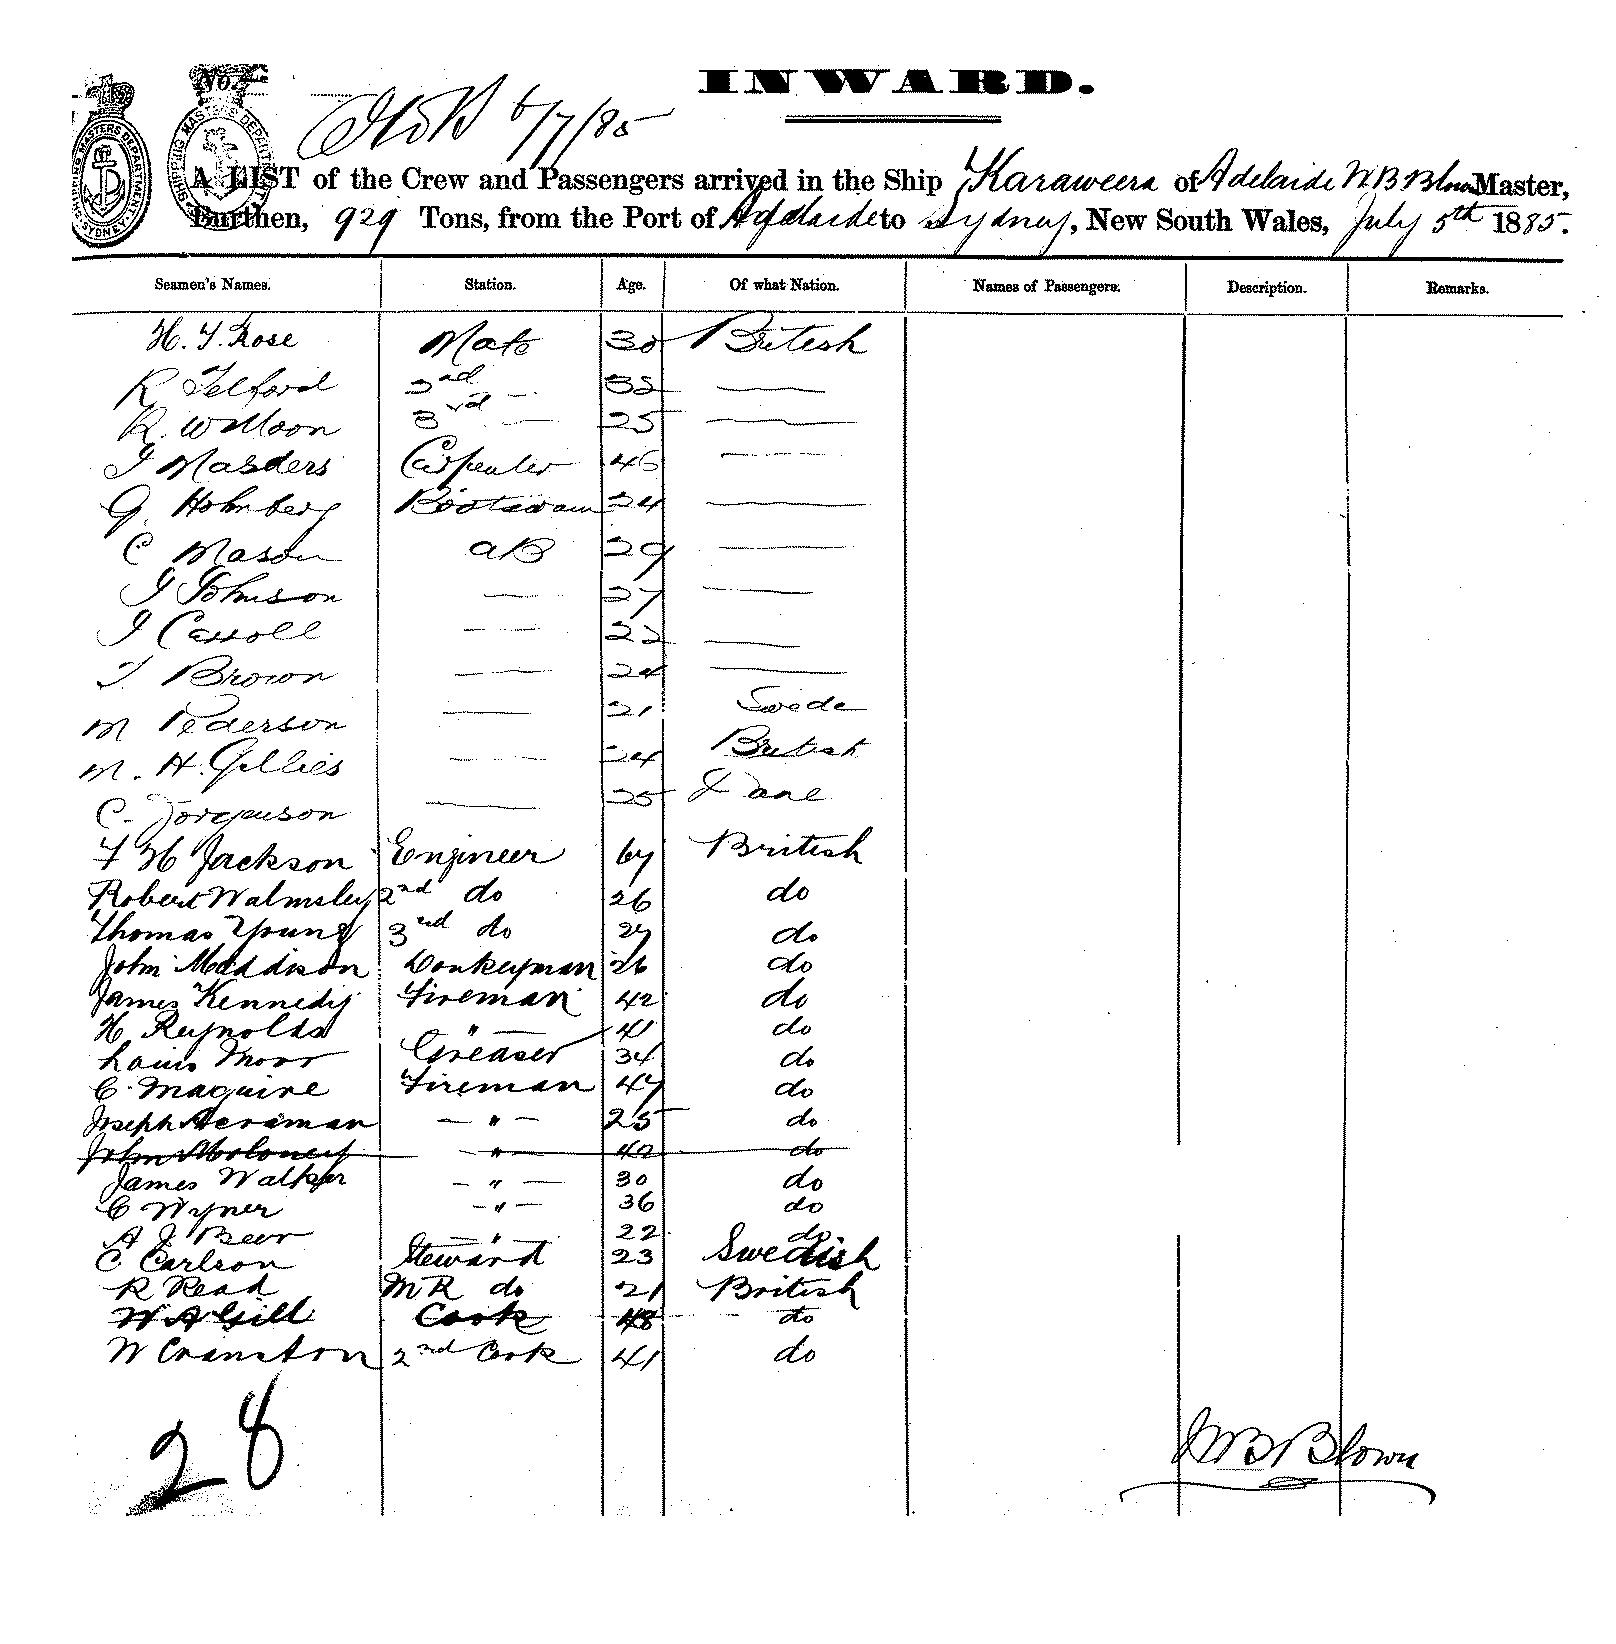 No.
INWARD.
6/7/85
A LIST of the Crew and Passengers arrived in the Ship Karaweera of Adelaide W.B Blown Master,
Burthen, 929 Tons, from the Port of Adelaide to Sydney, New South Wales, July 5th 1885.
Seamen's Names. Station. Age. Of what Nation. Names of Passengers. Description. Remarks.
H. Y. Rose Mate 30 British
R Telford 2nd — 32 —
R. W Moon 3rd — 25 —
J Masders Carpenter 46 —
G. Holmberg Bootswain 24 —
C Mason AB 29 —
J Johnson — 27 —
J Carroll — 22 —
T. Brown — 24 —
M Pederson — 21 Swede
M. H. Gillies — 24 British
C. Jorgenson — 25 Dane
F H Jackson Engineer 67 British
Robert Walmsley 2nd do 26 do
Thomas Young 3rd do 27 do
John Maddison Donkeyman 26 do
James Kennedy Fireman 42 do
H Reynolds " — 41 do
Louis Moor Greaser 34 do
C. Maguire Fireman 47 do
Joseph Acraman — " — 25 do
John Moloney — " — 42 do
James Walker — " — 30 do
C Wyner — " — 36 do
A J Beer — " — 22 do
C Carlson Steward 23 Swedish
R Read MR do 21 British
W A Gill Cook 48 do
W Cranston 2nd Cook 41 do
28
W B Blown